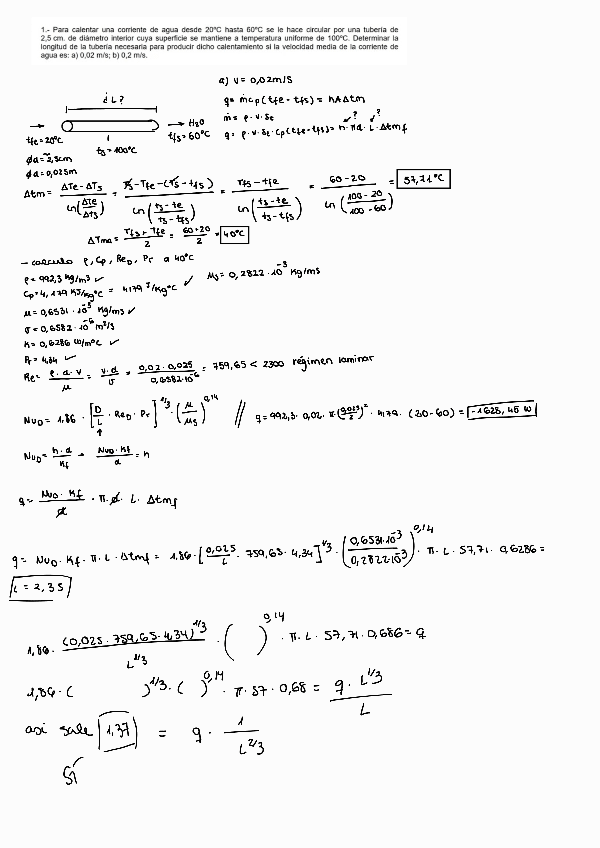 1.- Para calentar una corriente de agua desde 20ºC hasta 60ºC se le hace circular por una tubería de
2,5 cm. de diámetro interior cuya superficie se mantiene a temperatura uniforme de 100ºC. Determinar la
longitud de la tubería necesaria para producir dicho calentamiento si la velocidad media de la corriente de
agua es: a) 0,02 m/s; b) 0,2 m/s.
a) v = 0,02 m/s
¿L?
q = ṁ cp (tfe - tfs) = h A Δtm
ṁ = ρ · v · St
q = ρ · v · St · Cp (tfe - tfs) = h · πd · L · Δtmf
? ?
→ H2O
tfe = 20ºC
tfs = 60ºC
ts = 100ºC
φd = 2,5cm
φd = 0,025m
Δtm = (ΔTe - ΔTs) / ln(ΔTe/ΔTs) = (Ts - Tfe - (Ts - tfs)) / ln((ts - te)/(ts - tfs)) = (Tfs - tfe) / ln((ts - te)/(ts - tfs)) = (60 - 20) / ln((100 - 20)/(100 - 60)) = 57,71ºC
ΔTma = (Tfs + Tfe)/2 = (60+20)/2 = 40ºC
- calculo ρ, Cp, ReD, Pr a 40ºC
ρ = 992,3 Kg/m³ ✓
μs = 0,2822 · 10⁻³ Kg/ms
Cp = 4,179 KJ/KgºC = 4179 J/KgºC ✓
μ = 0,6531 · 10⁻³ Kg/ms ✓
σ = 0,6582 · 10⁻⁶ m²/s
K = 0,6286 W/mºC ✓
Pr = 4,34 ✓
Re = (ρ · d · v)/μ = (v · d)/σ = (0,02 · 0,025)/(0,6582·10⁻⁶) = 759,65 < 2300 régimen laminar
NuD = 1,86 · [D/L · ReD · Pr]^1/3 · (μ/μs)^0,14 // q = 992,3 · 0,02 · π · (0,025/2)² · 4179 · (20 - 60) = -1628,45 W
NuD = (h · d)/Kf → (NuD · Kf)/d = h
q = (NuD · Kf)/d · π · d · L · Δtmf
q = NuD · Kf · π · L · Δtmf = 1,86 · [0,025/L · 759,65 · 4,34]^1/3 · (0,6531·10⁻³/0,2822·10⁻³)^0,14 · π · L · 57,71 · 0,6286 =
L = 2,35
1,86 · (0,025 · 759,65 · 4,34)^1/3 / L^1/3 · ( )^0,14 · π · L · 57,71 · 0,686 = q
1,86 · ( )^1/3 · ( )^0,14 · π · 57 · 0,68 = (q · L^1/3)/L
asi sale 1,37 = q · 1/L^2/3
Sí